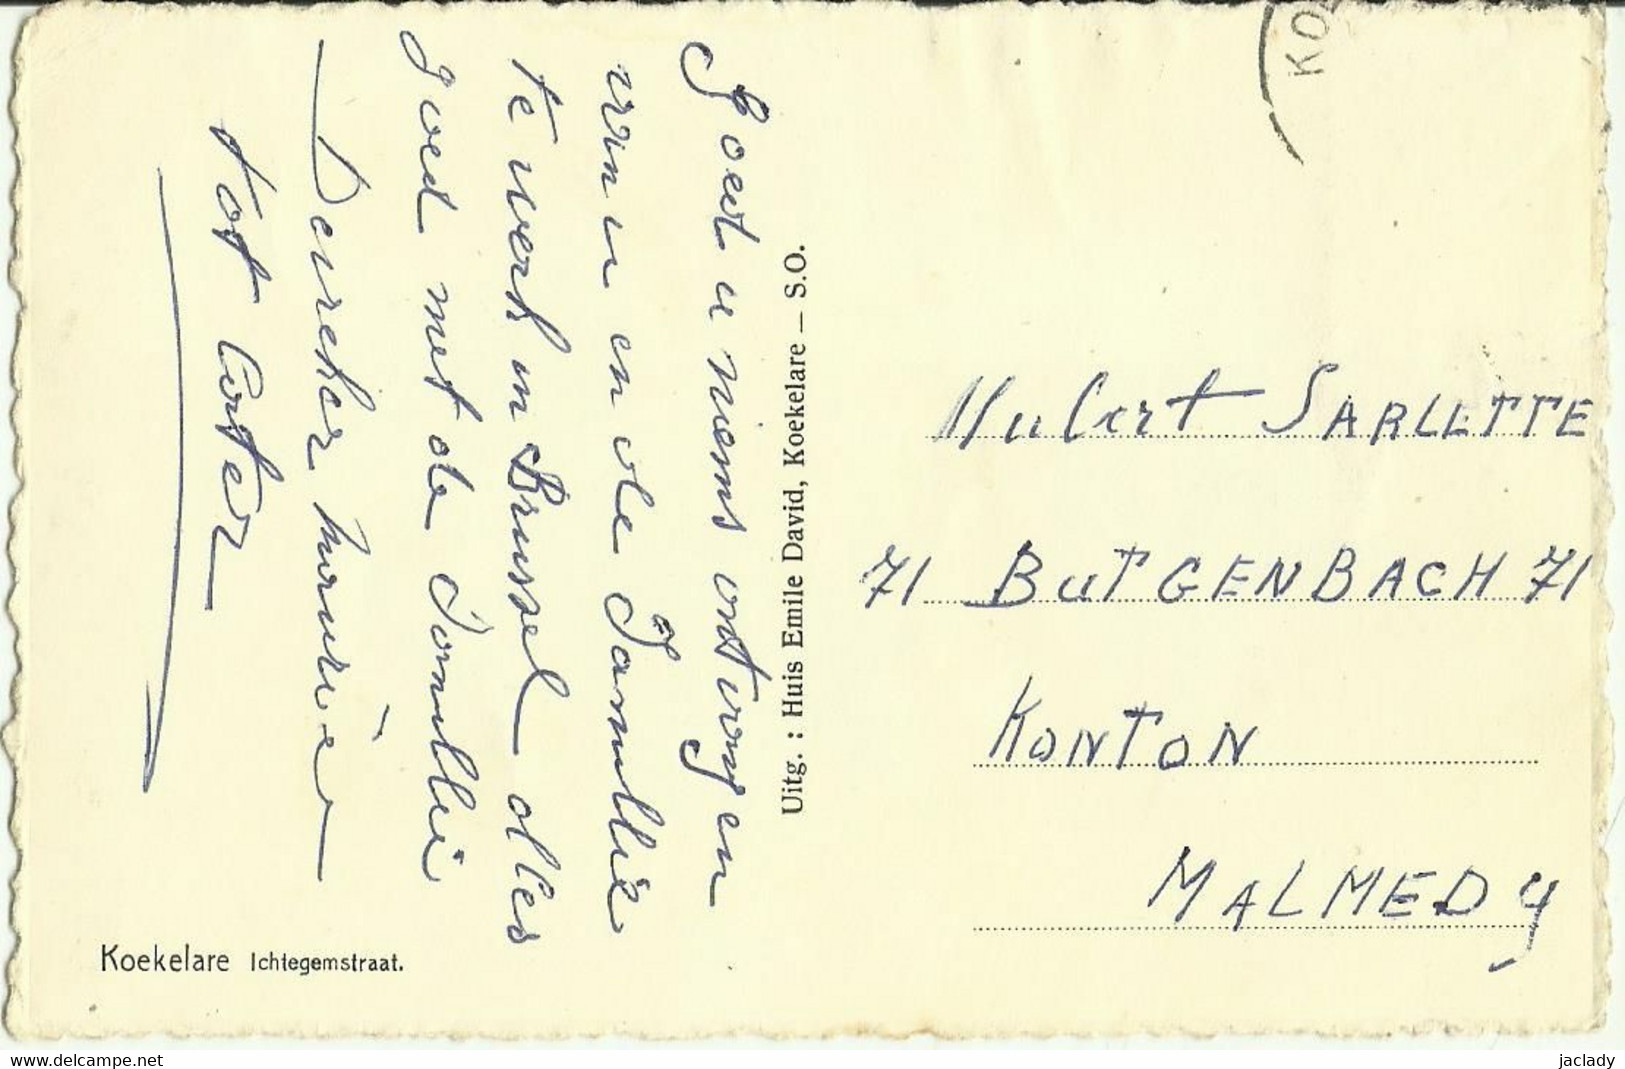 Goed u niews ontvangen
van u en de Familie
te werk in Brussel alles
goed met de Familie
Dereker Maurice
tot later
Uitg. : Huis Emile David, Koekelare — S.O.
Koekelare Ichtegemstraat.
KO
Hubert SARLETTE
71 BUTGENBACH 71
KONTON
MALMEDY
www.delcampe.net
jaclady